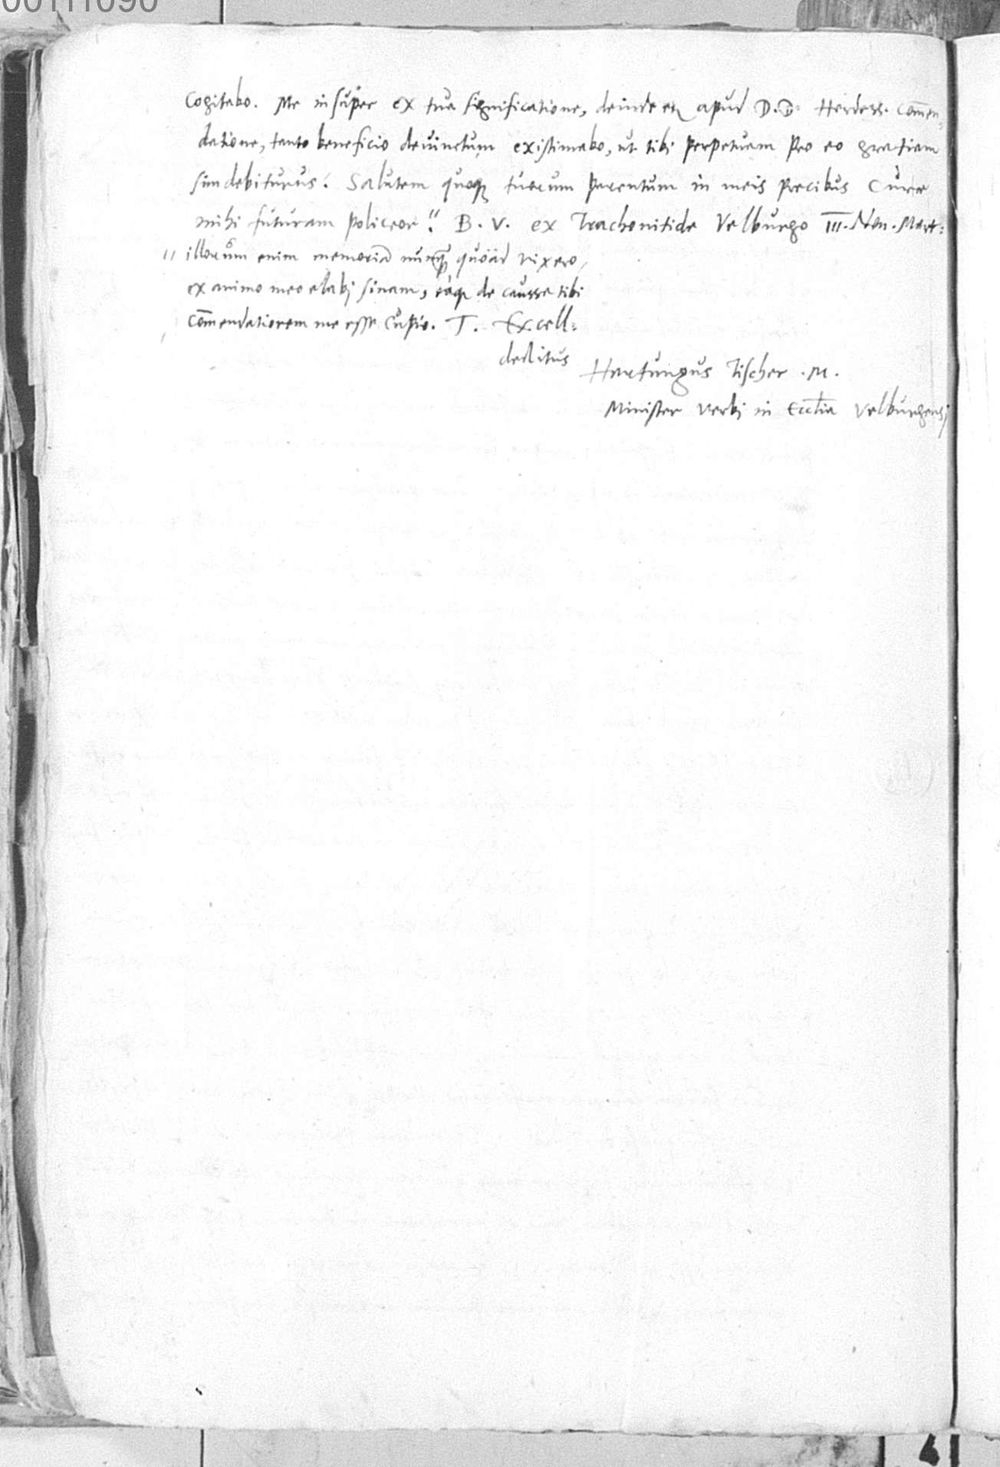 00111090
Cogitabo. Me insuper ex tua significatione, deinde etc apud D. D. Herdess. com̄en-
datione, tanto beneficio devinctum existimabo, ut tibi perpetuam pro eo gratiam
sim debiturus. Salutem quoque tuorum parentum in meis precibus Curæ
mihi futuram policeor." B. V. ex Trachonitide Velburgo III. Non. Mart:
" illorum enim memoriā nunquā quoad vixero,
ex animo meo elabi sinam, eaque de caussa tibi
com̄endatiorem me esse cupio. T. Excell:
deditus
Hartungus Tischer .M.
Minister verbi in Eccl̄ia Velburgensi